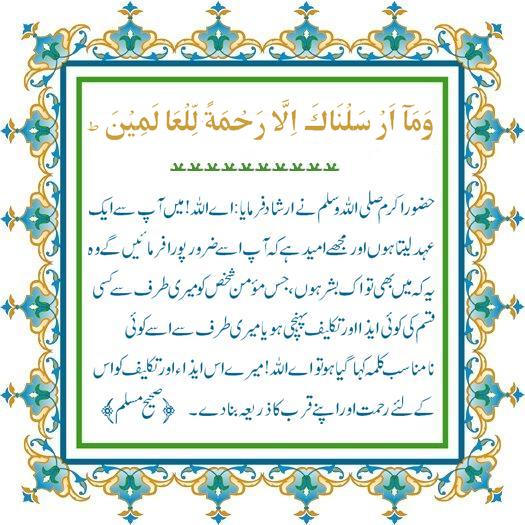 وَمَآ اَرْسَلْنَاكَ اِلَّا رَحْمَةً لِّلْعَا لَمِيْنَ ط
حضور اکرم صلی اللہ وسلم نے ارشاد فرمایا: اے اللہ! میں آپ سے ایک
عہد لیتا ہوں اور مجھے امید ہے کہ آپ اسے ضرور پورا فرمائیں گے وہ
یہ کہ میں بھی تو اک بشر ہوں، جس مؤمن شخص کو میری طرف سے کسی
قسم کی کوئی ایذا اور تکلیف پہنچی ہو یا میری طرف سے اسے کوئی
نا مناسب کلمہ کہا گیا ہو تو اے اللہ! میرے اس ایذاء اور تکلیف کو اس
کے لئے رحمت اور اپنے قرب کا ذریعہ بنا دے۔ ﴿صحیح مسلم﴾